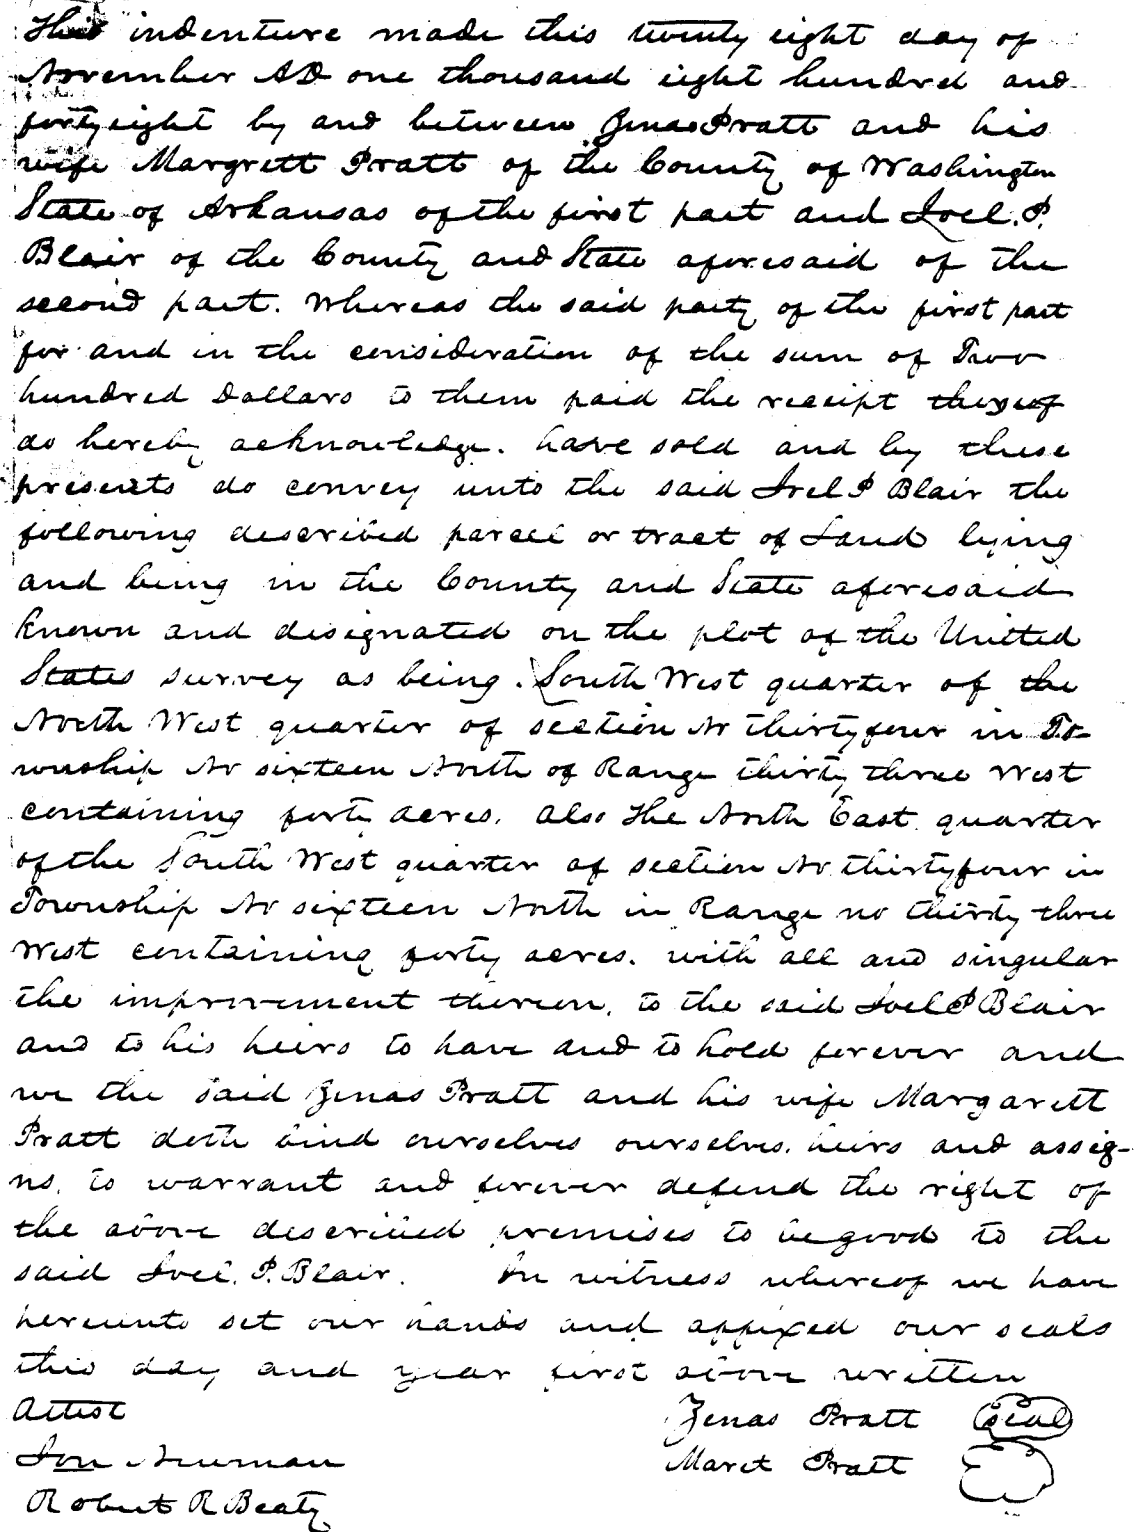 This indenture made this twenty eight day of
November AD one thousand eight hundred and
forty eight by and between Zenas Pratt and his
wife Margrett Pratt of the County of Washington
State of Arkansas of the first part and Joel. P.
Blair of the County and State aforesaid of the
second part. Whereas the said party of the first part
for and in the consideration of the sum of Two
hundred Dollars to them paid the receipt thereof
do hereby acknowledge. have sold and by these
presents do convey unto the said Joel P Blair the
following described parcel or tract of Land lying
and being in the County and State aforesaid
known and designated on the plot of the United
States survey as being. South West quarter of the
North West quarter of section No thirtyfour in To-
wnship No sixteen North of Range thirty three West
containing forty acres. also the North East quarter
of the South West quarter of section No thirtyfour in
Township No sixteen North in Range no thirdy three
West containing forty acres. with all and singular
the improvement thereon, to the said Joel P Blair
and to his heirs to have and to hold forever and
we the said Zenas Pratt and his wife Margarett
Pratt doth bind ourselves ourselves. heirs and assig-
ns. to warrant and forever defend the right of
the above described premises to be good to the
said Joel. P. Blair. In witness whereof we have
hereunto set our hands and affixed our seals
this day and year first above written
Attest Zenas Pratt Seal
Newman Maret Pratt
Robert R Beaty